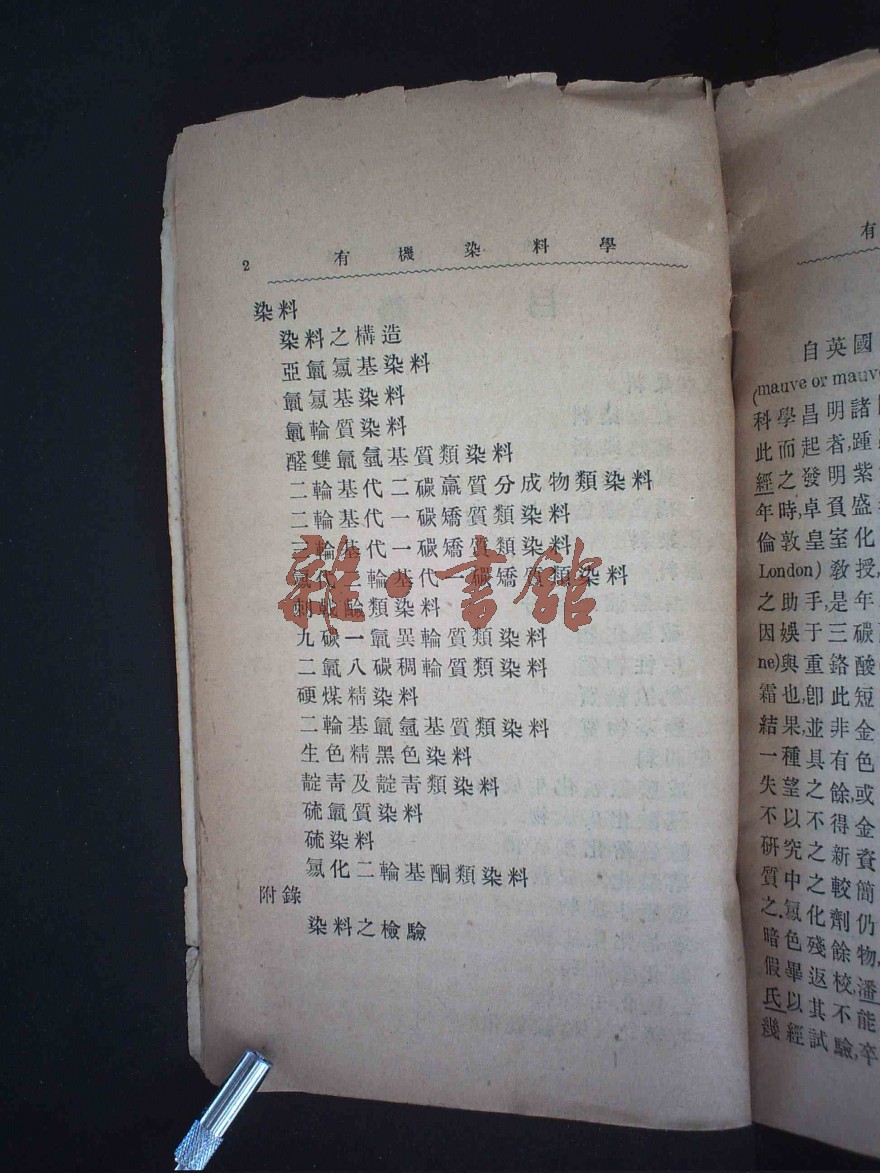 2 有機染料學
染料
染料之構造
亞氮氨基染料
氮氨基染料
氮輪質染料
醛雙氮氫基質類染料
二輪基代二碳羸質分成物類染料
二輪基代一碳矯質類染料
三輪基代一碳矯質類染料
氨代二輪基代一碳矯質類染料
類染料
九碳一氮異輪質類染料
二氮八碳稠輪質類染料
硬煤精染料
二輪基氮氫基質類染料
生色精黑色染料
靛青及靛青類染料
硫氮質染料
硫染料
氨化二輪基酮類染料
附錄
染料之檢驗
雜·書館
有
自英國
(mauve or mauv
科學昌明諸
此而起者,踵
經之發明紫
年時,卓負盛
倫敦皇室化
London) 教授,
之助手,是年
因娛于三碳
ne)與重鉻酸
霜也,卽此短
結果,並非金
一種具有色
失望之餘,或
不以不得金
研究之新資
質中之較簡
之.氨化劑仍
暗色殘餘物,
假畢返校,潘
氏以其不能
幾經試驗,卒